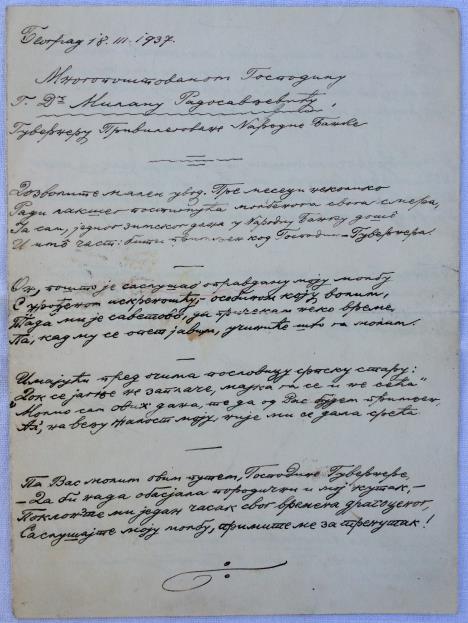 Београд 18. III. 1937.
Многопоштованом Господину
Г. Др Милану Радосављевићу,
Гувернеру Привилеговане Народне Банке
Дозволите мален увод. Пре месеци неколико
Ради лакшег постигнућа мољенога свога смера,
Ја сам, једног зимског дана у Народну Банку дошо
И имо част: бити примљен код Господина Гувернера.
Он, пошто је саслушао оправдану моју молбу
С урођеном искреношћу, особином коју волим,
Тада ми је саветово, да причекам неко време,
Па, кад му се опет јавим, учиниће што га молим.
Имајући пред очима пословицу српску стару:
„Док се јагње не заплаче, мајка га се и не сећа"
Молио сам ових дана, те да од Вас будем примљен,
Ал', на већу жалост моју, није ми се дала срећа
Па Вас молим овим путем, Господине Гувернере,
— Да би нада обасјала породични и мој кутак, —
Поклоните ми један часак свог времена драгоценог,
Саслушајте моју молбу, примите ме за тренутак!